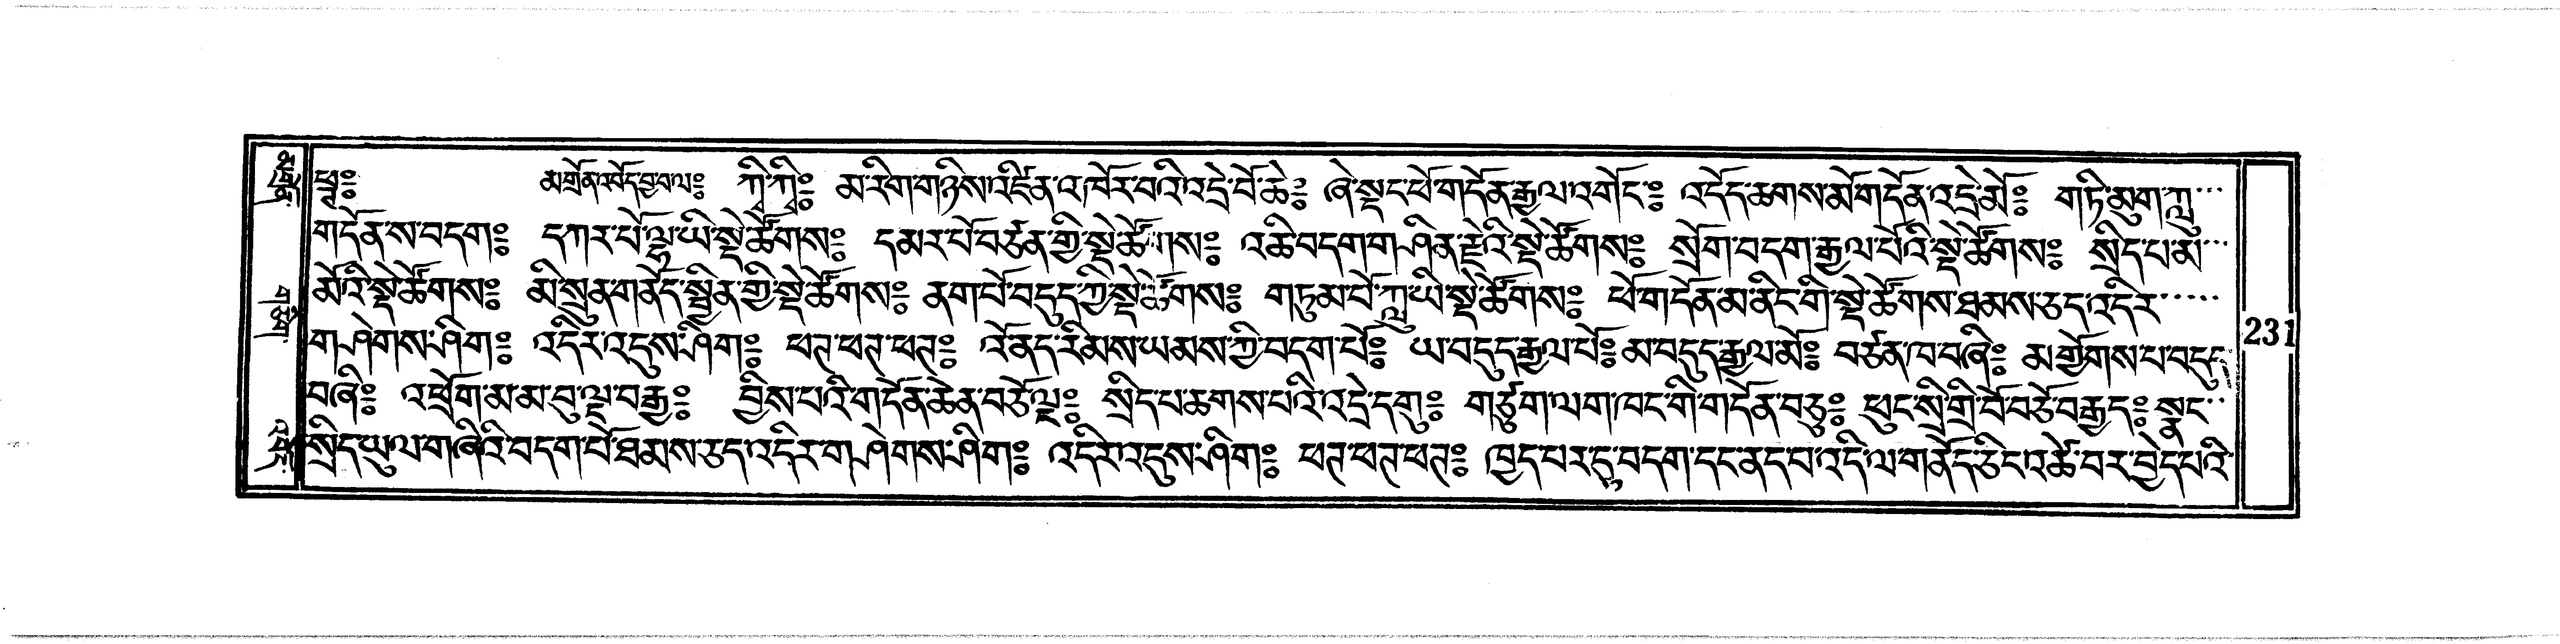 ཕཊ༔ མགྲོན་འབོད་བྱ་བ་ལ༔ ཀཱི་ཀཱི༔ མ་རིག་གཉིས་འཛིན་འཁོར་བའི་འདྲེ་པོ་ཆེ༔ ཞེ་སྡང་ཕོ་གདོན་རྒྱལ་འགོང་༔ འདོད་ཆགས་མོ་གདོན་འདྲེ་མོ༔ གཏི་མུག་ཀླུ་…
གདོན་ས་བདག༔ དཀར་པོ་ལྷ་ཡི་སྡེ་ཚོགས༔ དམར་པོ་བཙན་གྱི་སྡེ་ཚོགས༔ འཆི་བདག་གཤིན་རྗེའི་སྡེ་ཚོགས༔ སྲོག་བདག་རྒྱལ་པོའི་སྡེ་ཚོགས༔ སྲིད་པ་མ་…
མོའི་སྡེ་ཚོགས༔ མི་སྲུན་གནོད་སྦྱིན་གྱི་སྡེ་ཚོགས༔ ནག་པོ་བདུད་ཀྱི་སྡེ་ཚོགས༔ གཏུམ་པོ་ཀླུ་ཡི་སྡེ་ཚོགས༔ ཕོ་གདོན་མ་ནིང་གི་སྡེ་ཚོགས་ཐམས་ཅད་འདིར་…
གཤེགས་ཤིག༔ འདིར་འདུས་ཤིག༔ ཕཊ་ཕཊ་ཕཊ༔ འོ་ནད་རིམས་ཡམས་ཀྱི་བདག་པོ༔ ཡ་བདུད་རྒྱལ་པོ༔ མ་བདུད་རྒྱལ་མོ༔ བཙན་ཁ་བ་བཞི༔ མགྱོགས་པ་བདུད་
བཞི༔ འཕྲོག་མ་མ་བུ་ལྔ་བརྒྱ༔ བྱིས་པའི་གདོན་ཆེན་བཅོ་ལྔ༔ སྲིད་པ་ཆགས་པའི་འདྲེ་དགུ༔ གཙུག་ལག་ཁང་གི་གདོན་བཅུ༔ ཕུང་སྲི་གྲི་བོ་བཅོ་བརྒྱད༔ སྣང་…
སྲིད་ཡུལ་གཞིའི་བདག་པོ་ཐམས་ཅད་འདིར་གཤེགས་ཤིག༔ འདིར་འདུས་ཤིག༔ ཕཊ་ཕཊ་ཕཊ༔ ཁྱད་པར་དུ་བདག་དང་ནད་པ་འདི་ལ་གནོད་ཅིང་འཚེ་བར་བྱེད་པའི་
231